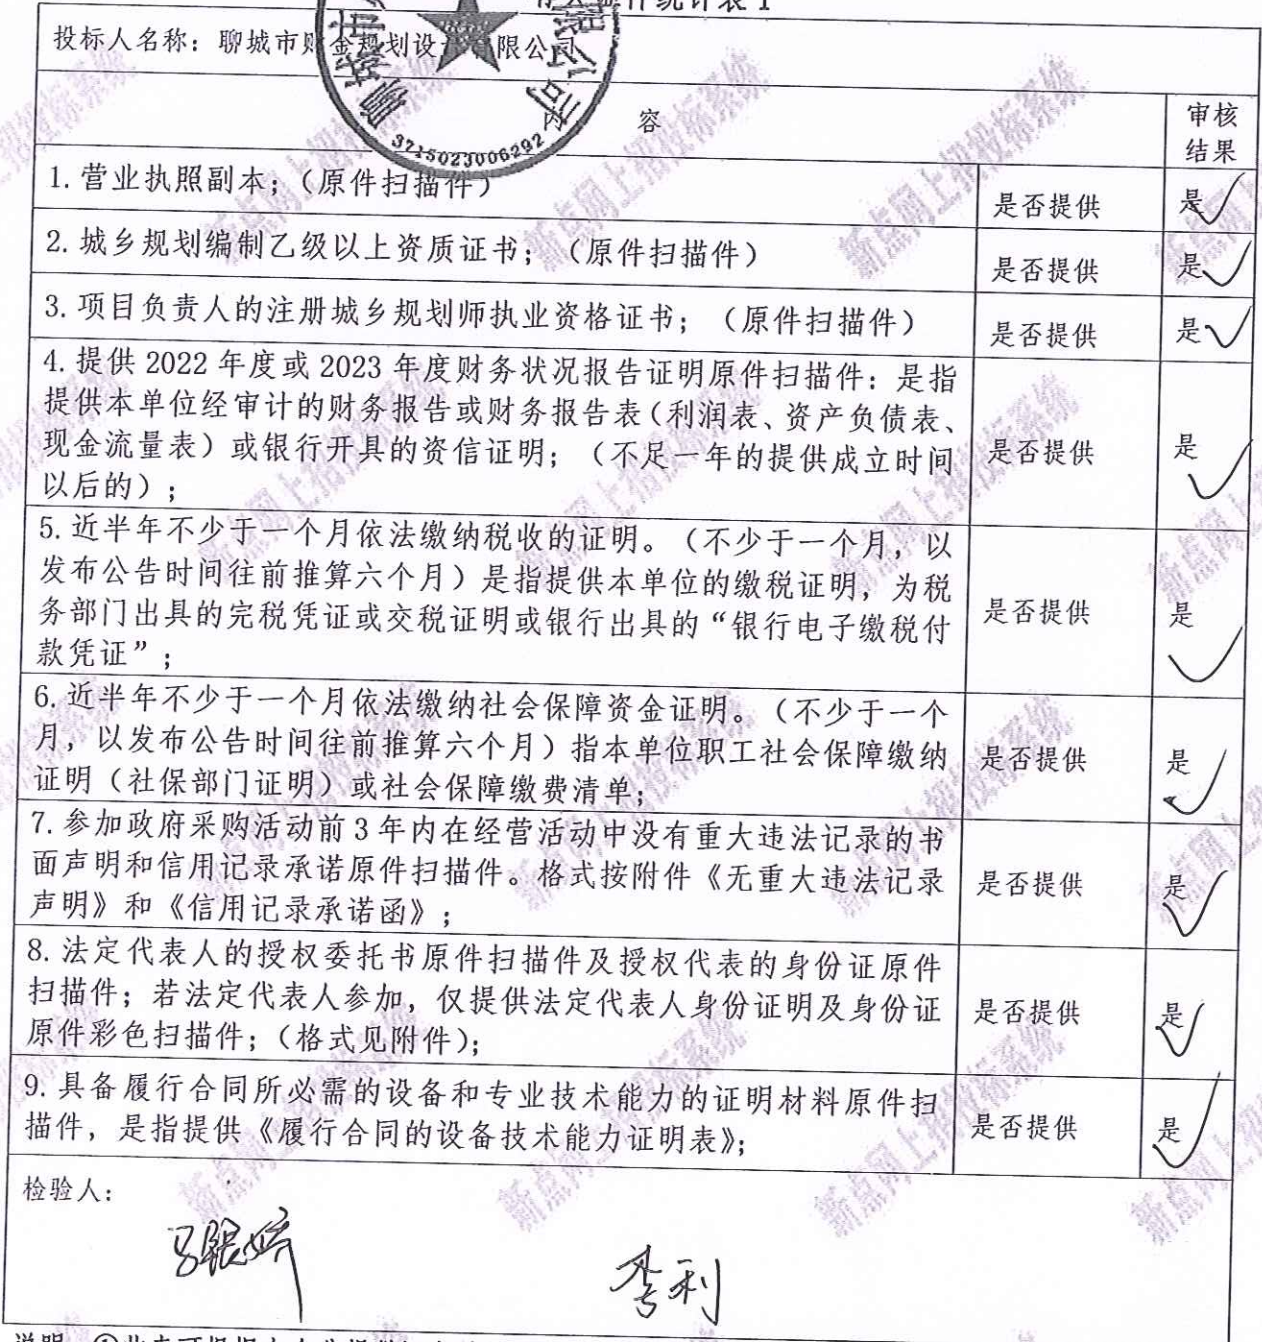 投标人名称：聊城市财金规划设计有限公司
3715023006292
容
审核
结果
1.营业执照副本；（原件扫描件）
是否提供
是
2.城乡规划编制乙级以上资质证书；（原件扫描件）
是否提供
是
3.项目负责人的注册城乡规划师执业资格证书；（原件扫描件）
是否提供
是
4.提供 2022 年度或 2023 年度财务状况报告证明原件扫描件：是指
提供本单位经审计的财务报告或财务报告表（利润表、资产负债表、
现金流量表）或银行开具的资信证明；（不足一年的提供成立时间
以后的）；
是否提供
是
5.近半年不少于一个月依法缴纳税收的证明。（不少于一个月，以
发布公告时间往前推算六个月）是指提供本单位的缴税证明，为税
务部门出具的完税凭证或交税证明或银行出具的“银行电子缴税付
款凭证”；
是否提供
是
6.近半年不少于一个月依法缴纳社会保障资金证明。（不少于一个
月，以发布公告时间往前推算六个月）指本单位职工社会保障缴纳
证明（社保部门证明）或社会保障缴费清单；
是否提供
是
7.参加政府采购活动前 3 年内在经营活动中没有重大违法记录的书
面声明和信用记录承诺原件扫描件。格式按附件《无重大违法记录
声明》和《信用记录承诺函》；
是否提供
是
8.法定代表人的授权委托书原件扫描件及授权代表的身份证原件
扫描件；若法定代表人参加，仅提供法定代表人身份证明及身份证
原件彩色扫描件；（格式见附件）；
是否提供
是
9.具备履行合同所必需的设备和专业技术能力的证明材料原件扫
描件，是指提供《履行合同的设备技术能力证明表》；
是否提供
是
检验人：
李利
新点网上招投标系统